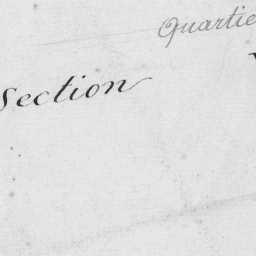 Quartie
Section